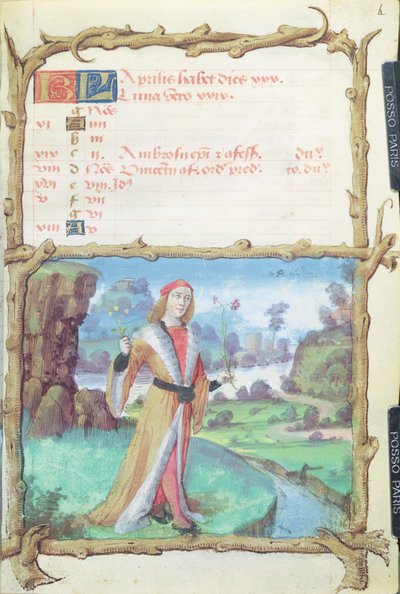 KL Aprilis habet dies xxx.
Luna vero xxix.
g Nōs
xi A iiii
b iii
xix c ii. Ambrosii epi̅ ⁊ ꝯfess. du.
viii d Nōs Vincen̅ ꝯf. ord. pred. to. du.
xvi e viii. Jd
v f vii
g vi
xiii A v
POSSO PARIS
POSSO PARIS